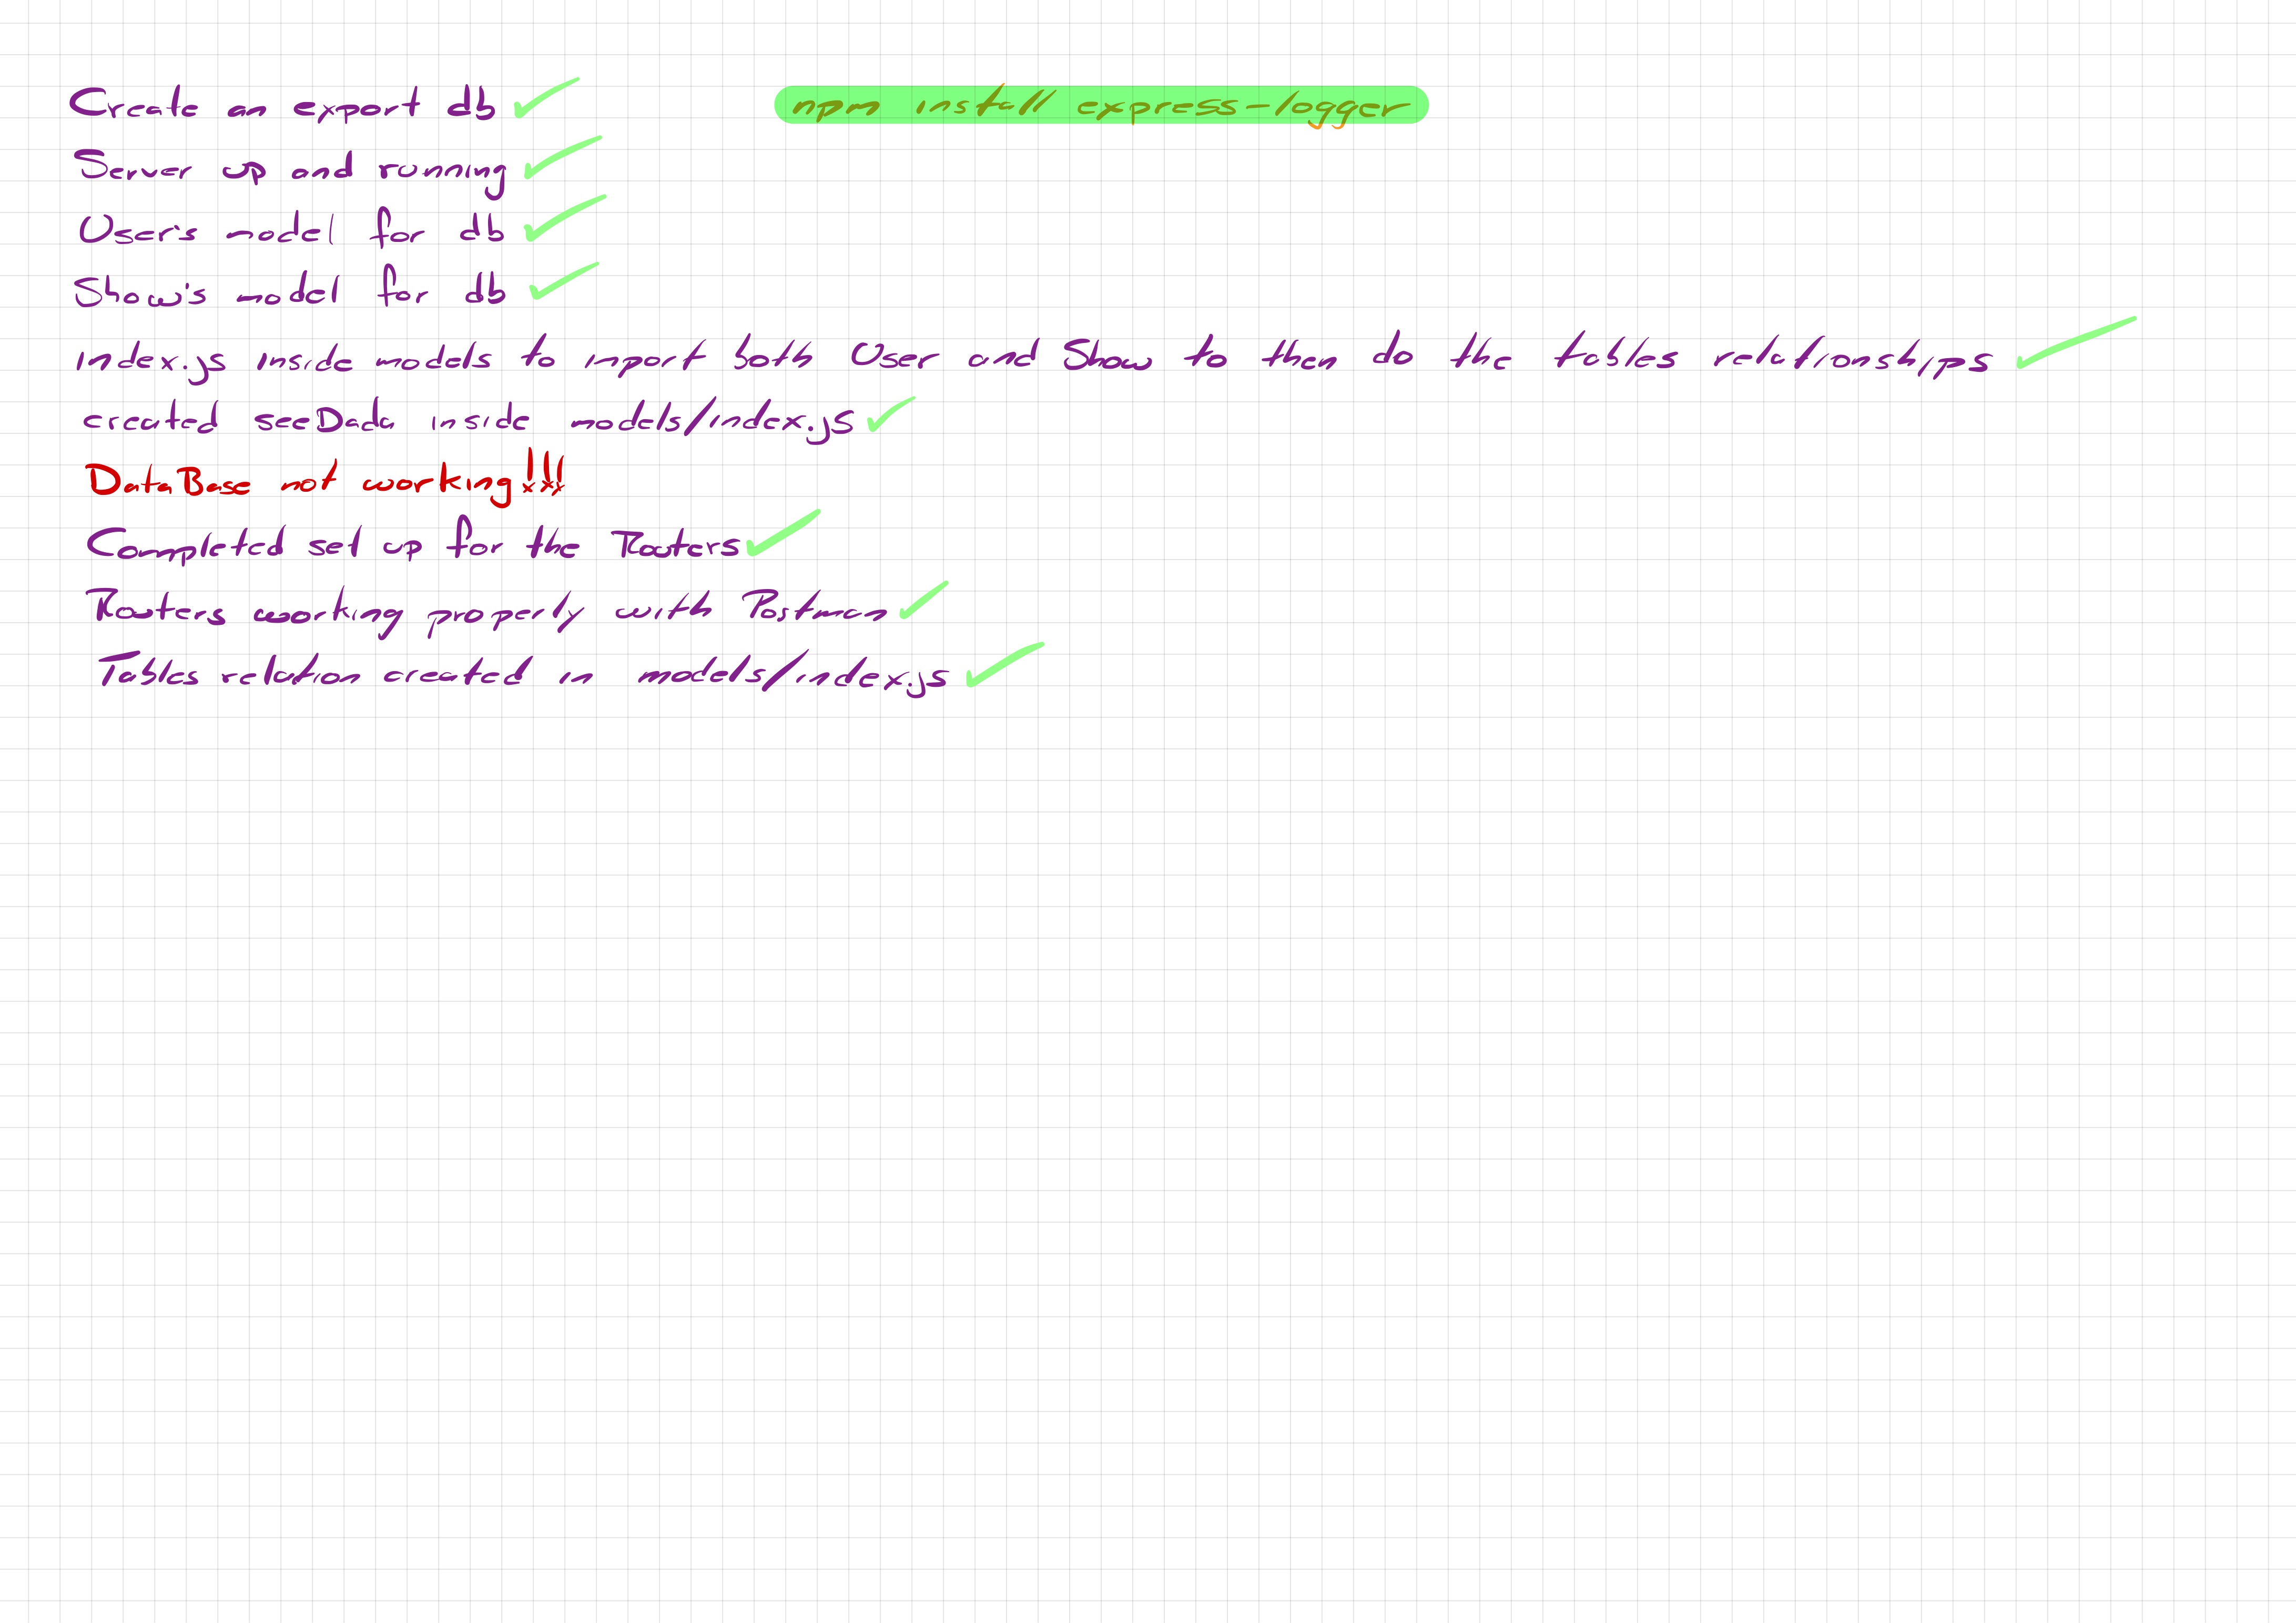 Create an export db
npm install express-logger
Server up and running
User's model for db
Show's model for db
index.js inside models to import both User and Show to then do the tables relationships
created seeDada inside models/index.js
DataBase not working!!!
Completed set up for the Routers
Routers working properly with Postman
Tables relation created in models/index.js